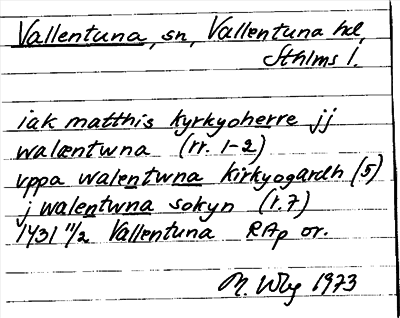 Vallentuna, sn, Vallentuna hd,
Sthlms l.
iak matthis kyrkyoherre jj
walæntwna (rr. 1-2)
vppa walentwna kirkyogardh (5)
j walentwna sokyn (r.7)
1431 11/2 Vallentuna RAp or.
M. 1973